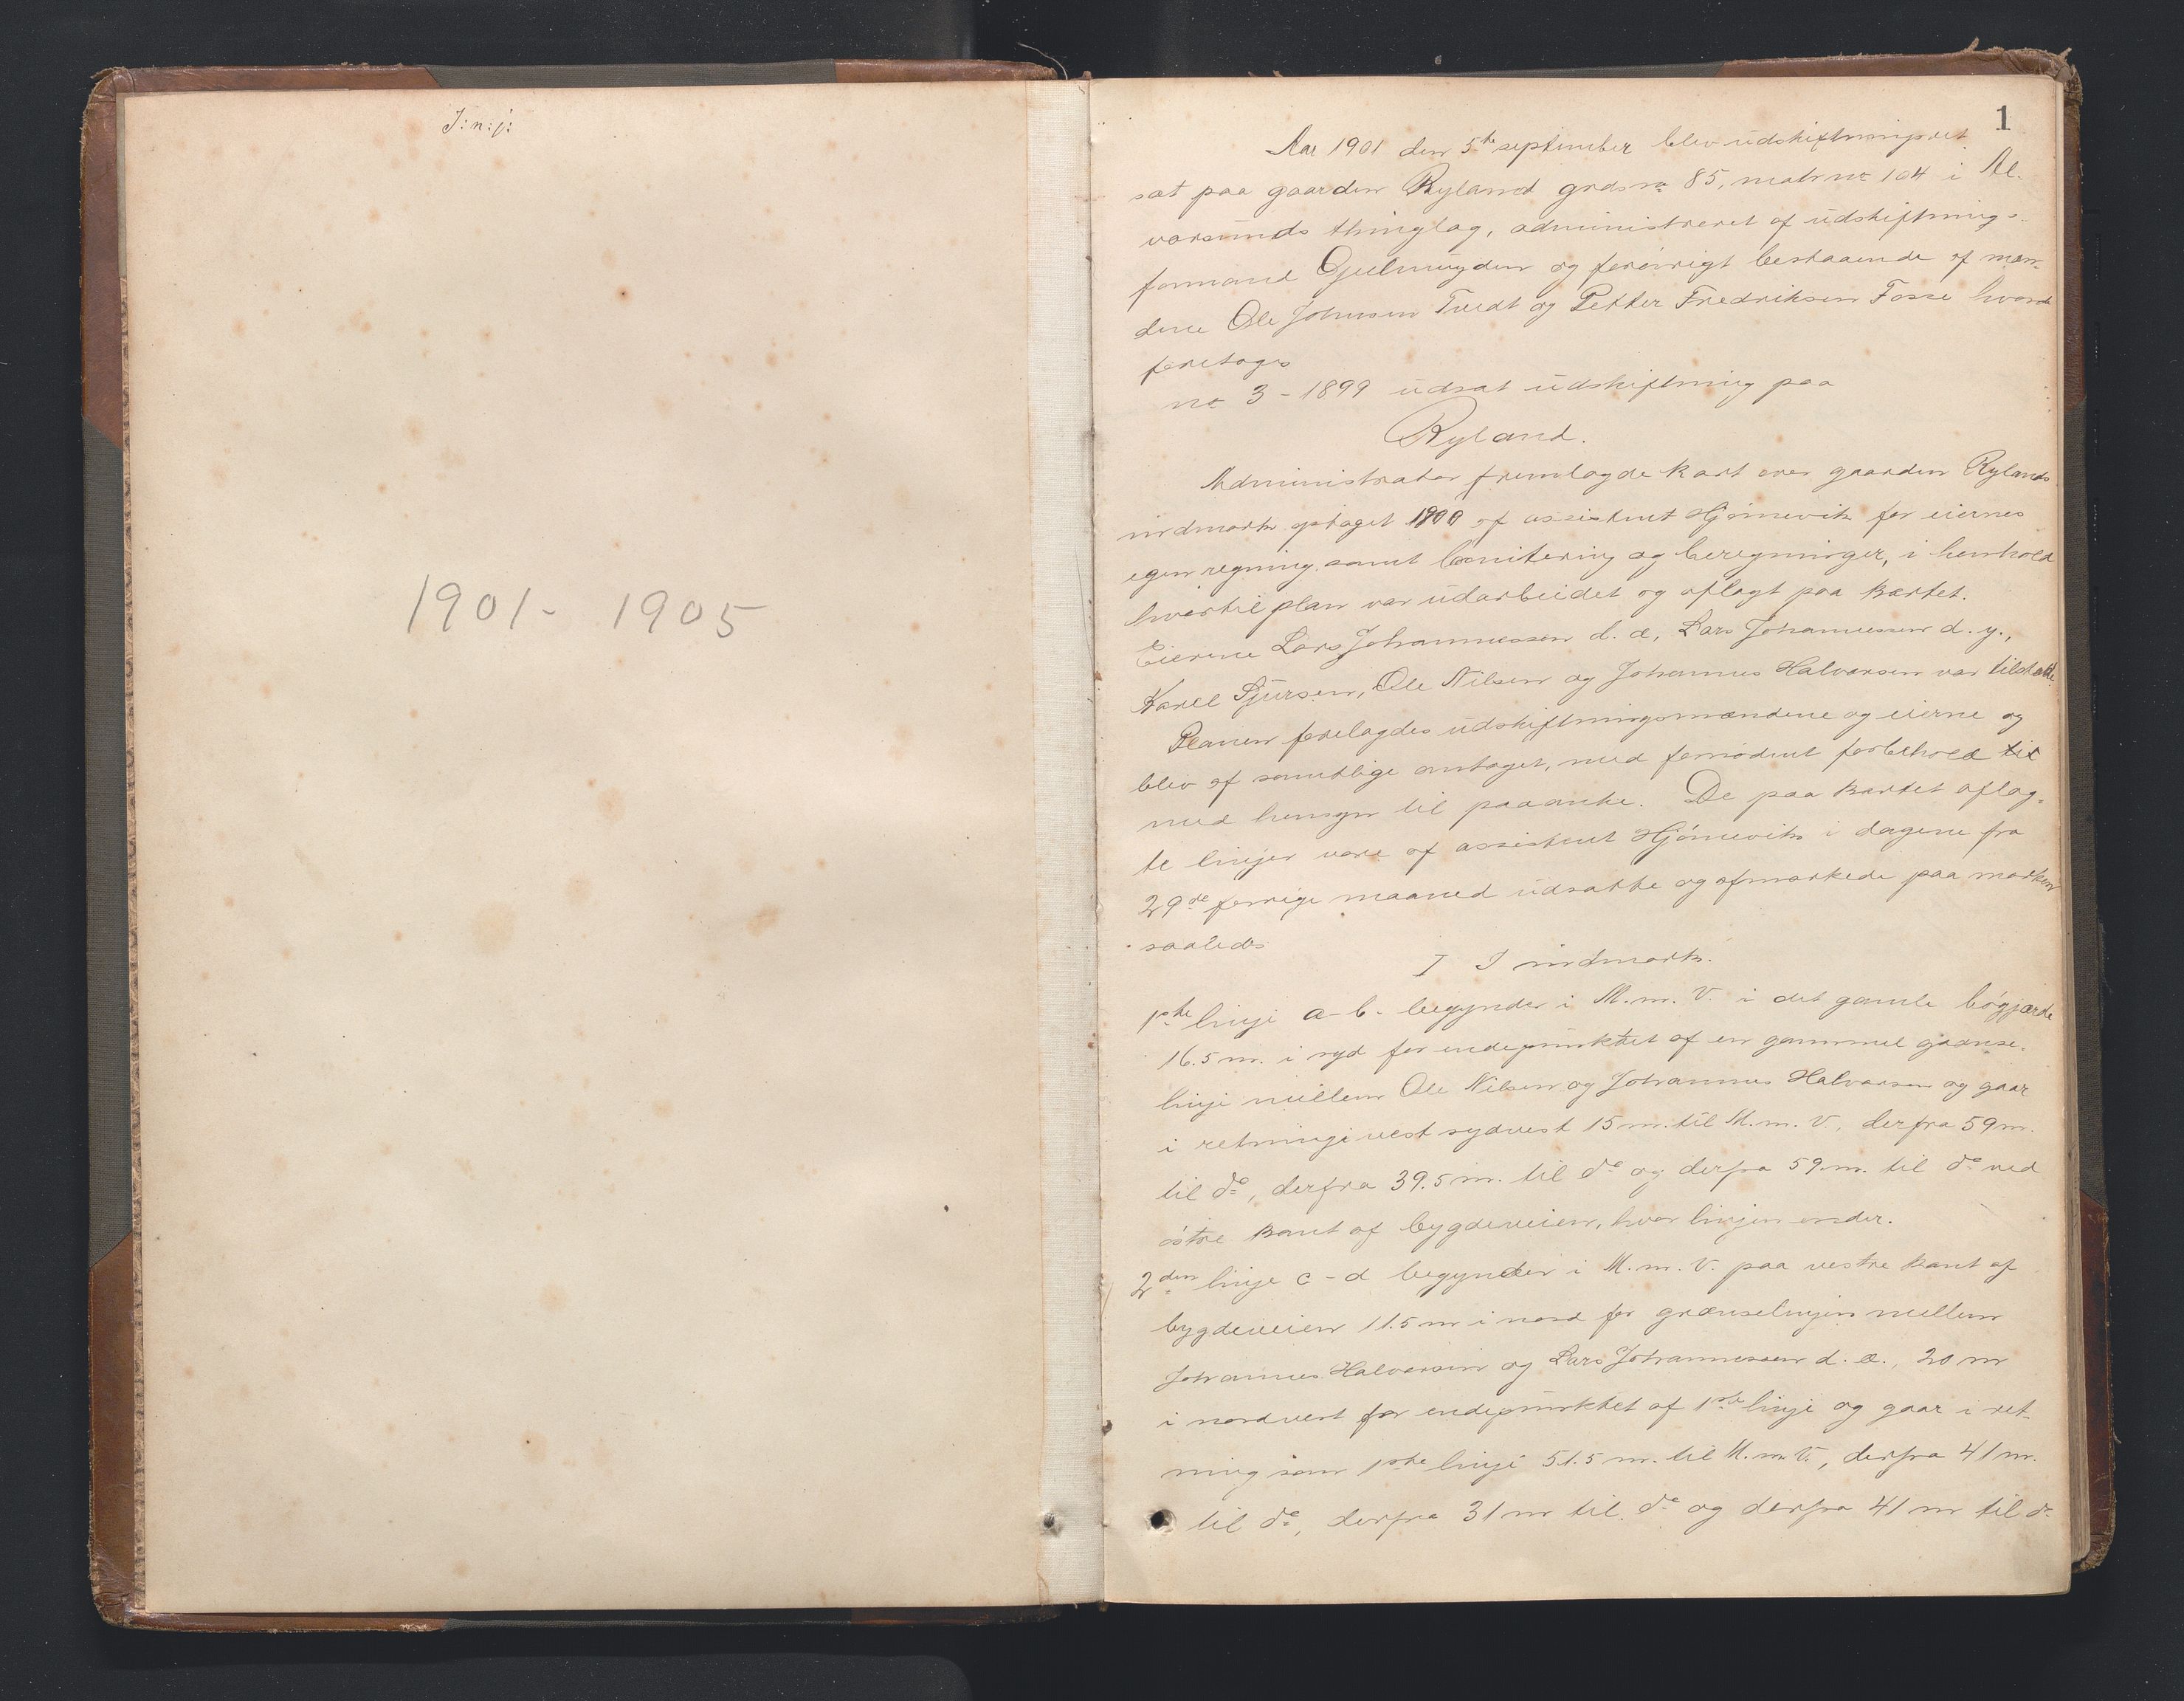 J: n: j:
1901 - 1905
1
Aar 1901 den 5te september blev udskiftningsret
sat paa gaarden Ryland grdsno 85, matr no 104 i Al-
versunds thinglag, administreret af udskiftnings-
formand Gjelmuyden og forøvrigt bestaaende af mæn-
dene Ole Johnsen Tvedt og Petter Fredriksen Fosse hvorda
foretoges
no 3 - 1899 udsat udskiftning paa
Ryland.
Administrator fremlagde kart over gaarden Rylands
indmark optaget 1900 af assistent Hjørnevik for eiernes
egen regning samt bonitering og beregninger, i henhold
hvortil plan var udarbeidet og aflagt paa kartet.
Eierne Lars Johannessen d. æ, Lars Johannessen d. y.,
Karel Sjursen, Ole Nilsen og Johannes Halvorsen var tilstæde.
Planen forelagdes udskiftningsmændene og eierne og
blev af samtlige antaget, med fornødent forbehold til
med hensyn til paaanke. De paa kartet aflag-
te linjer vare af assistent Hjørnevik i dagene fra
29de forrige maaned udsatte og afmærkede paa marken
saaledes
I I indmark.
1ste linje a-b. begynder i M. m. V. i det gamle bøgjærde
16.5 m. i syd for endepunktet af en gammel grænse-
linje mellem Ole Nilsen og Johannes Halvorsen og gaar
i retning vest sydvest 15 m. til M. m. V., derfra 59 m.
til do, derfra 39.5 m. til do og derfra 59 m. til do ved
østre kant af bygdeveien, hvor linjen ender.
2den linje c-d begynder i M. m. V. paa vestre kant af
bygdeveien 11.5 m i nord for grænselinjen mellem
Johannes Halvorsen og Lars Johannessen d. æ., 20 m
i nordvest for endepunktet af 1ste linje og gaar i ret-
ning som 1ste linje 51.5 m. til M. m. V., derfra 41 m.
til do, derfra 31 m til do og derfra 41 m til do